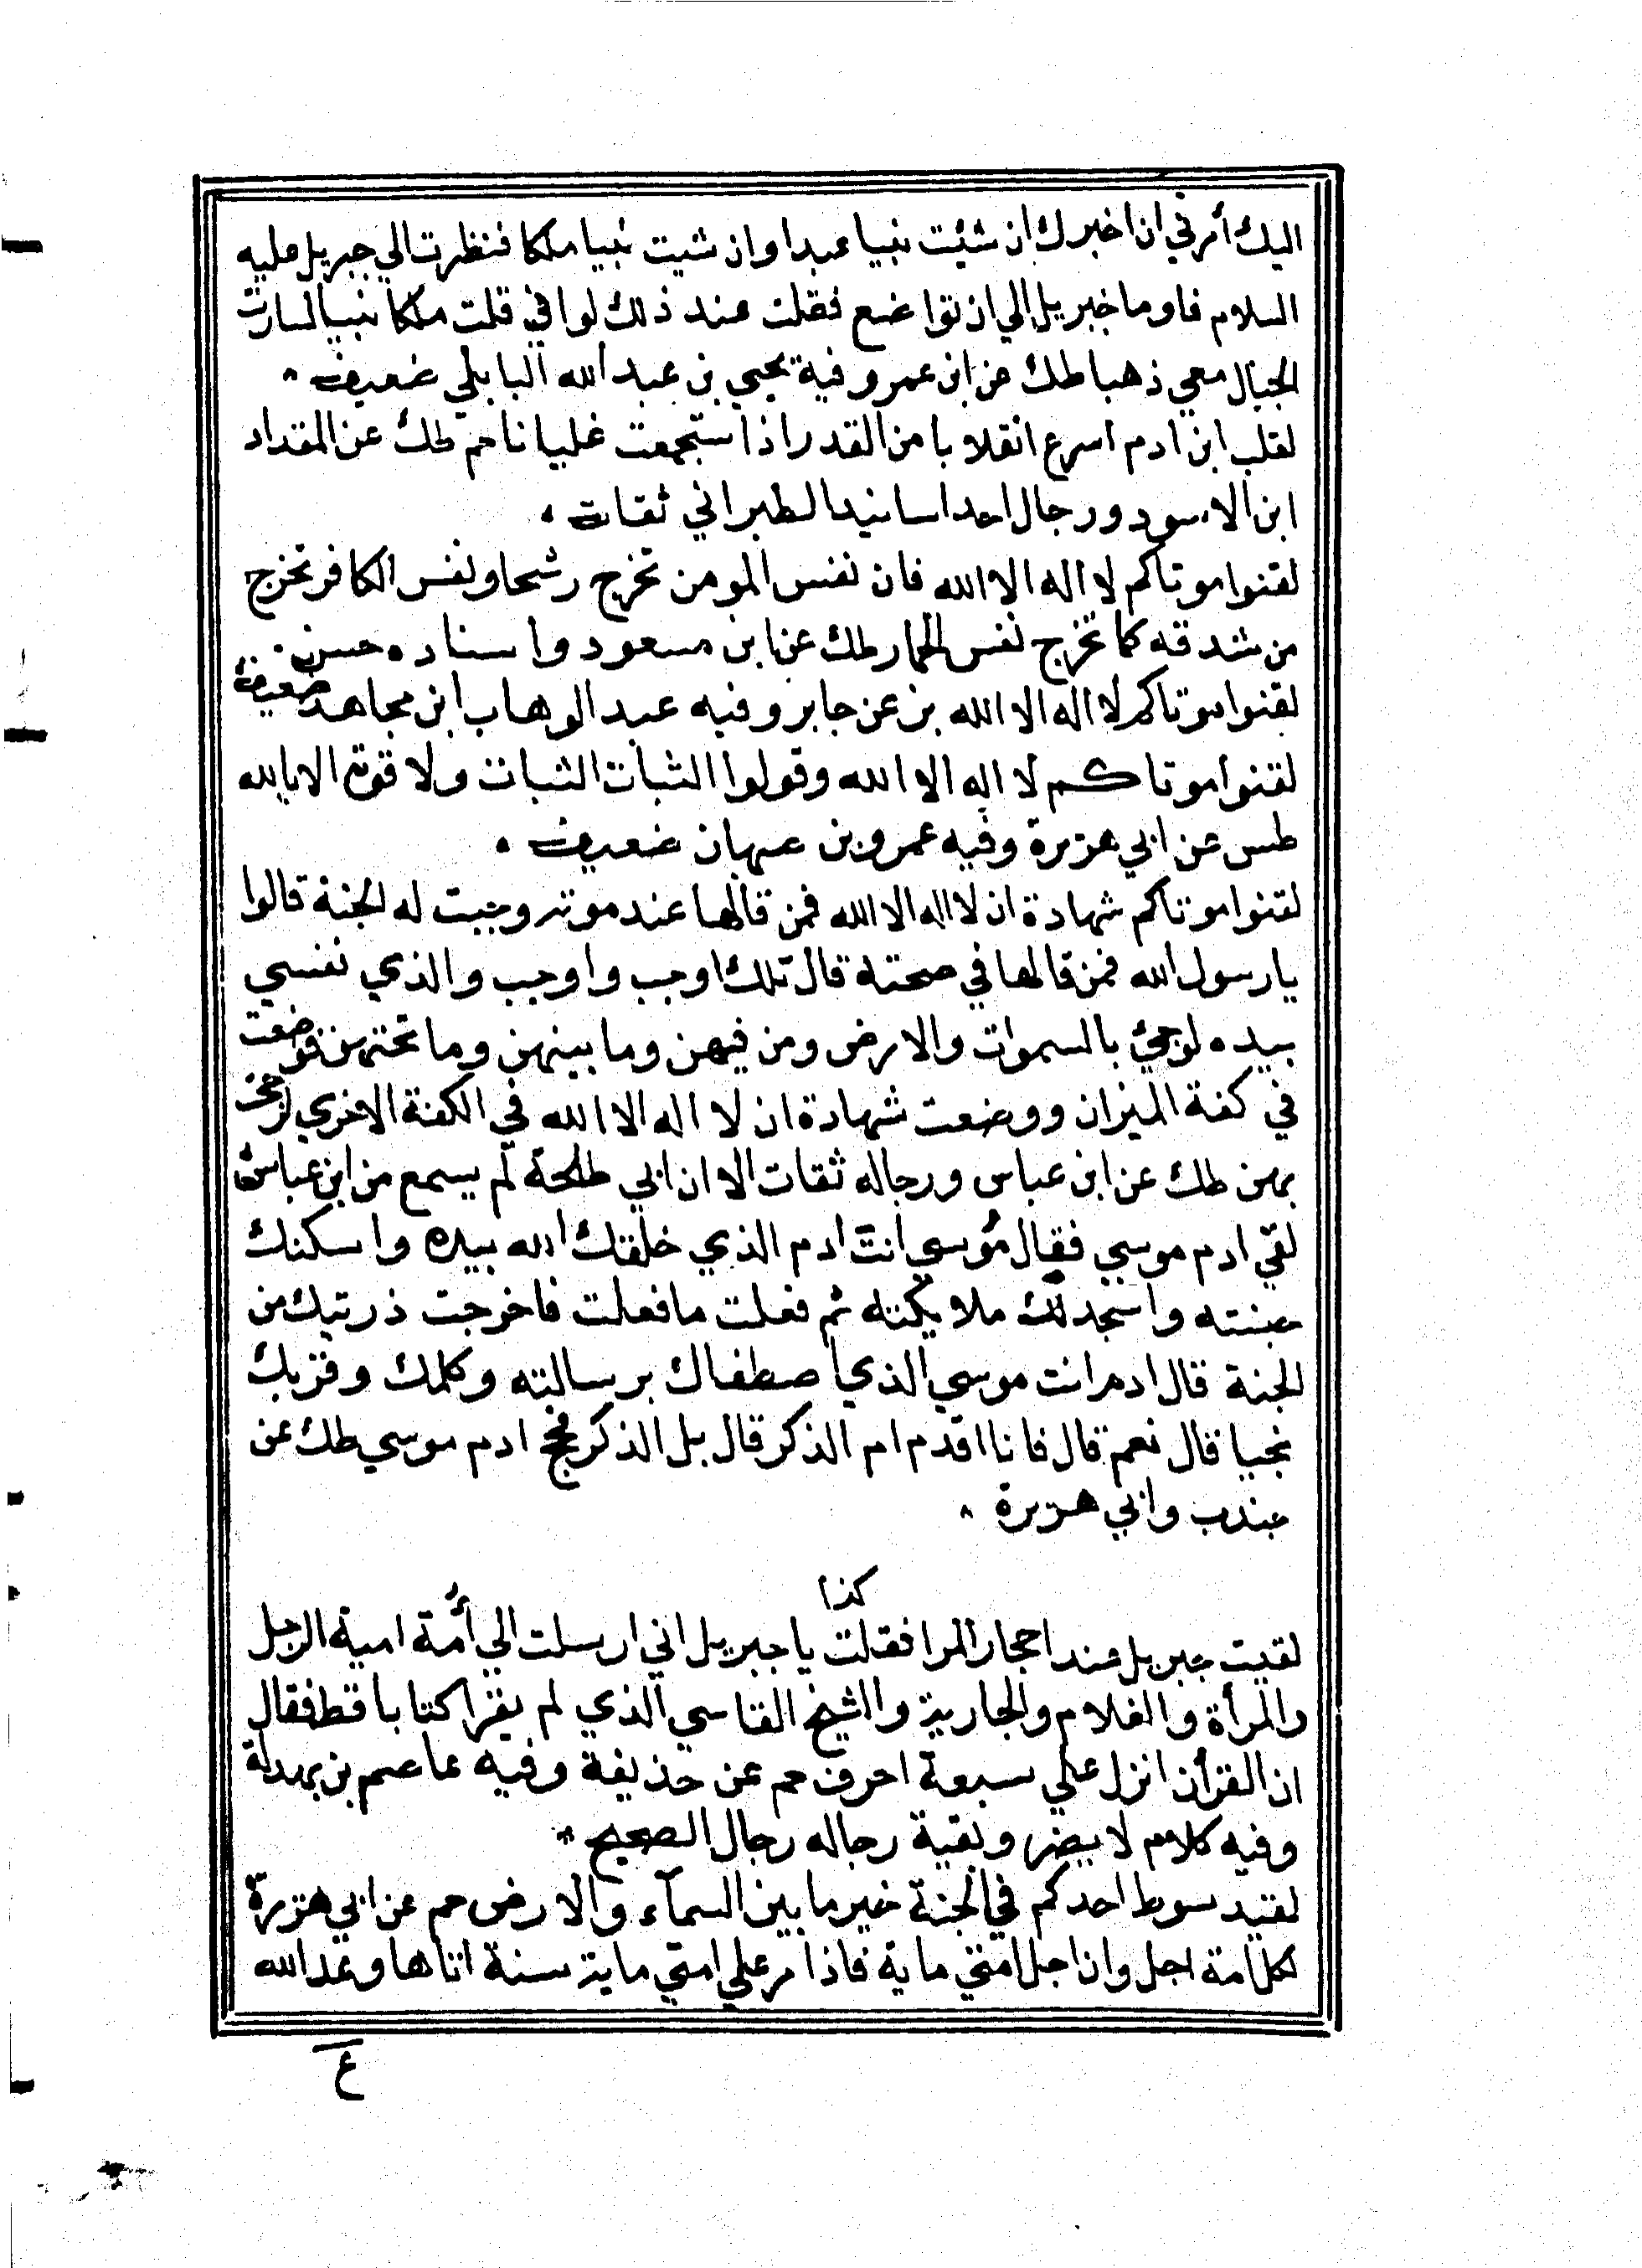 اليك أمرني ان اخبرك ان شئت نبيا عبدا وان شيت نبيا ملكا فنظرت الي جبريل عليه
السلام فاوما جبريل الي ان تواضع فقلت عند ذلك لو اني قلت ملكا نبيا لسارت
الجبال معي ذهبا طك عن ابن عمر وفية يحيي بن عبد الله البابلي ضعيف
لقلب ابن ادم اسرع انقلابا من القدر اذا استجمعت غليانا حم طك عن المقداد
ابن الاسود ورجال احد اسانيد الطبراني ثقات
لقنوا موتاكم لا اله الا الله فان نفس المومن تخرج رشحا ونفس الكافر تخرج
من شدقه كما تخرج نفس الحمار طك عن ابن مسعود واسناده حسن
لقنوا موتاكم لا اله الا الله بز عن جابر وفيه عبد الوهاب ابن مجاهد ضعيف
لقنوا موتاكم لا اله الا الله وقولوا الثبات الثبات ولا قوة الا بالله
طس عن ابي هريرة وفيه عمرو بن صهبان ضعيف
لقنوا موتاكم شهادة ان لا اله الا الله فمن قالها عند موته وجبت له الجنة قالوا
يا رسول الله فمن قالها في صحتة قال تلك اوجب واوجب والذي نفسي
بيده لو جئ بالسموات والارض ومن فيهن وما بينهن وما تحتهن فوضعت
في كفة الميزان ووضعت شهادة ان لا اله الا الله في الكفة الاخري لرجحت
بهن طك عن ابن عباس ورجاله ثقات الا ان ابي طلحة لم يسمع من ابن عباس
لقي ادم موسي فقال موسي انت ادم الذي خلقك الله بيده واسكنك
جنته واسجد لك ملايكته ثم فعلت ما فعلت فاخرجت ذريتك من
الجنة قال ادم انت موسي الذي اصطفاك برسالته وكلمك وقربك
نجيا قال نعم قال فانا اقدم ام الذكر قال بل الذكر فحج ادم موسي طك عن
جندب وابي هريرة
كذا
لقيت جبريل عند احجار المرا فقلت يا جبريل اني ارسلت الي أمة امية الرجل
والمرأة والغلام والجارية والشيخ القاسي الذي لم يقرا كتابا قط فقال
ان القرأن انزل علي سبعة احرف حم عن حذيفة وفيه عاصم بن بهدلة
وفيه كلام لا يضر وبقية رجاله رجال الصحيح
لقيد سوط احدكم في الجنة خير ما بين السمآء والارض حم عن ابي هريرة
لكل امة اجل وان اجل امتي ماية فاذا مر علي امتي ماية سنة اتاها وعد الله
ع